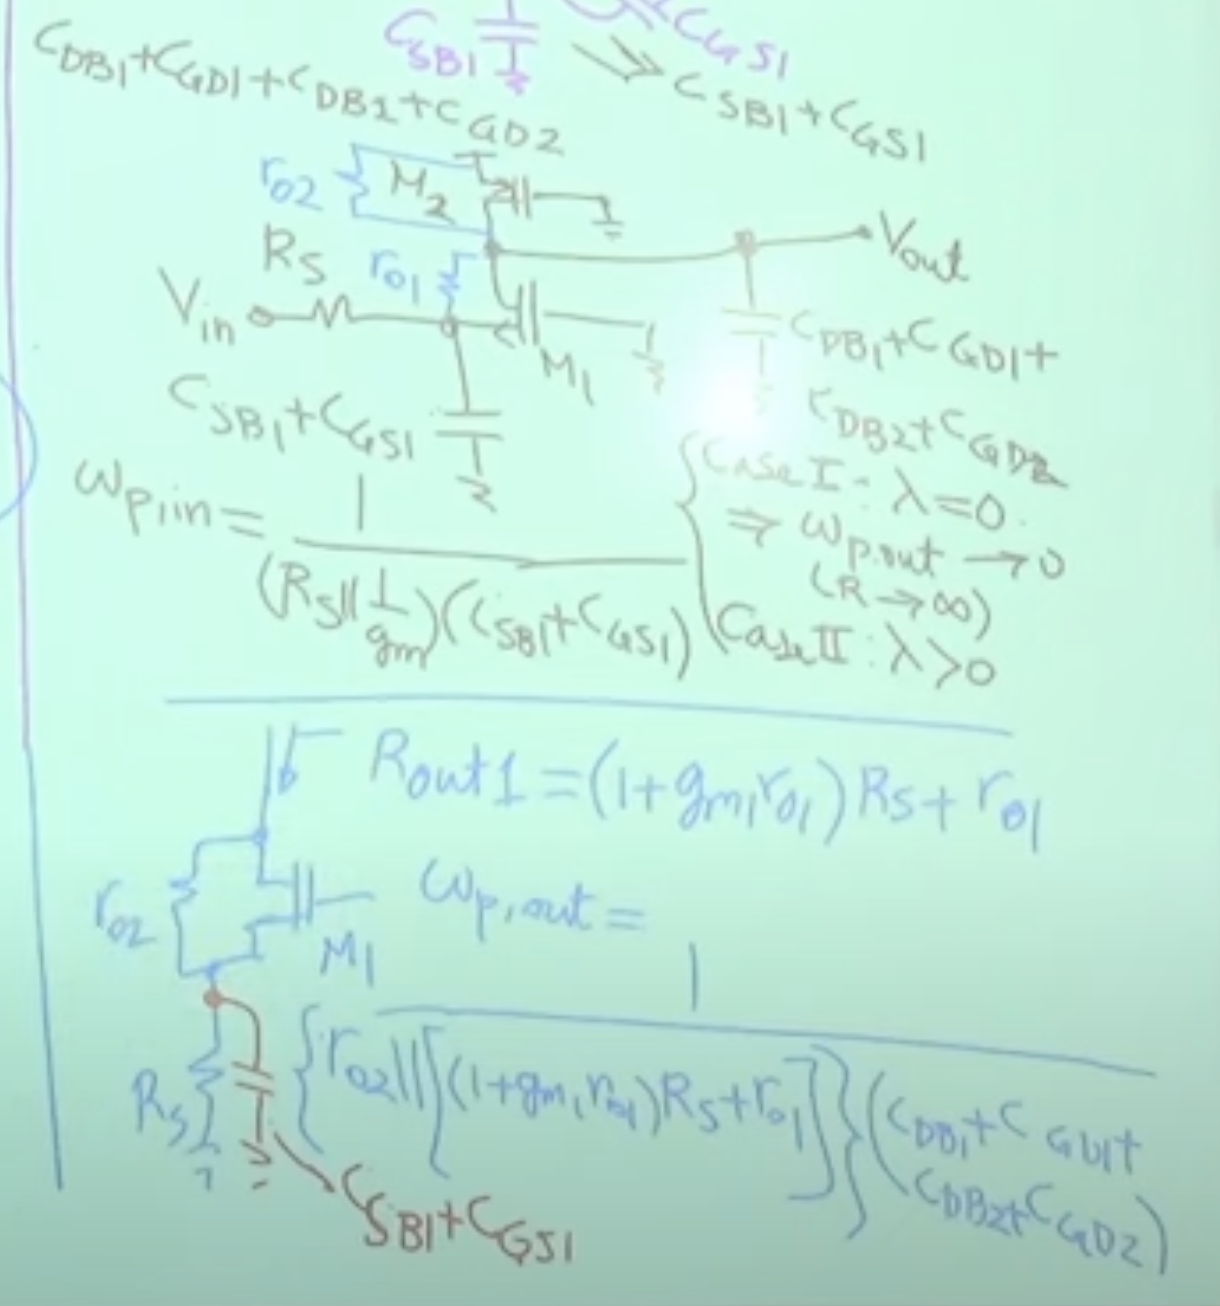 C_SB1
C_GS1
>> C_SB1+C_GS1
C_DB1+C_GD1+C_DB2+C_GD2
r_o2
M_2
R_S
r_o1
V_in
V_out
M_1
C_SB1+C_GS1
C_DB1+C_GD1+
C_DB2+C_GD2
ω_p,in = 1 / (R_S||1/g_m)(C_SB1+C_GS1)
Case I: λ=0.
⇒ ω_p,out → 0
(R→∞)
Case II: λ>0
R_out1=(1+g_m1r_o1)R_S+r_o1
r_o2
M_1
ω_p,out =
1
{r_o2||[(1+g_m1r_o1)R_S+r_o1]}(C_DB1+C_GD1+
C_DB2+C_GD2)
R_S
C_SB1+C_GS1